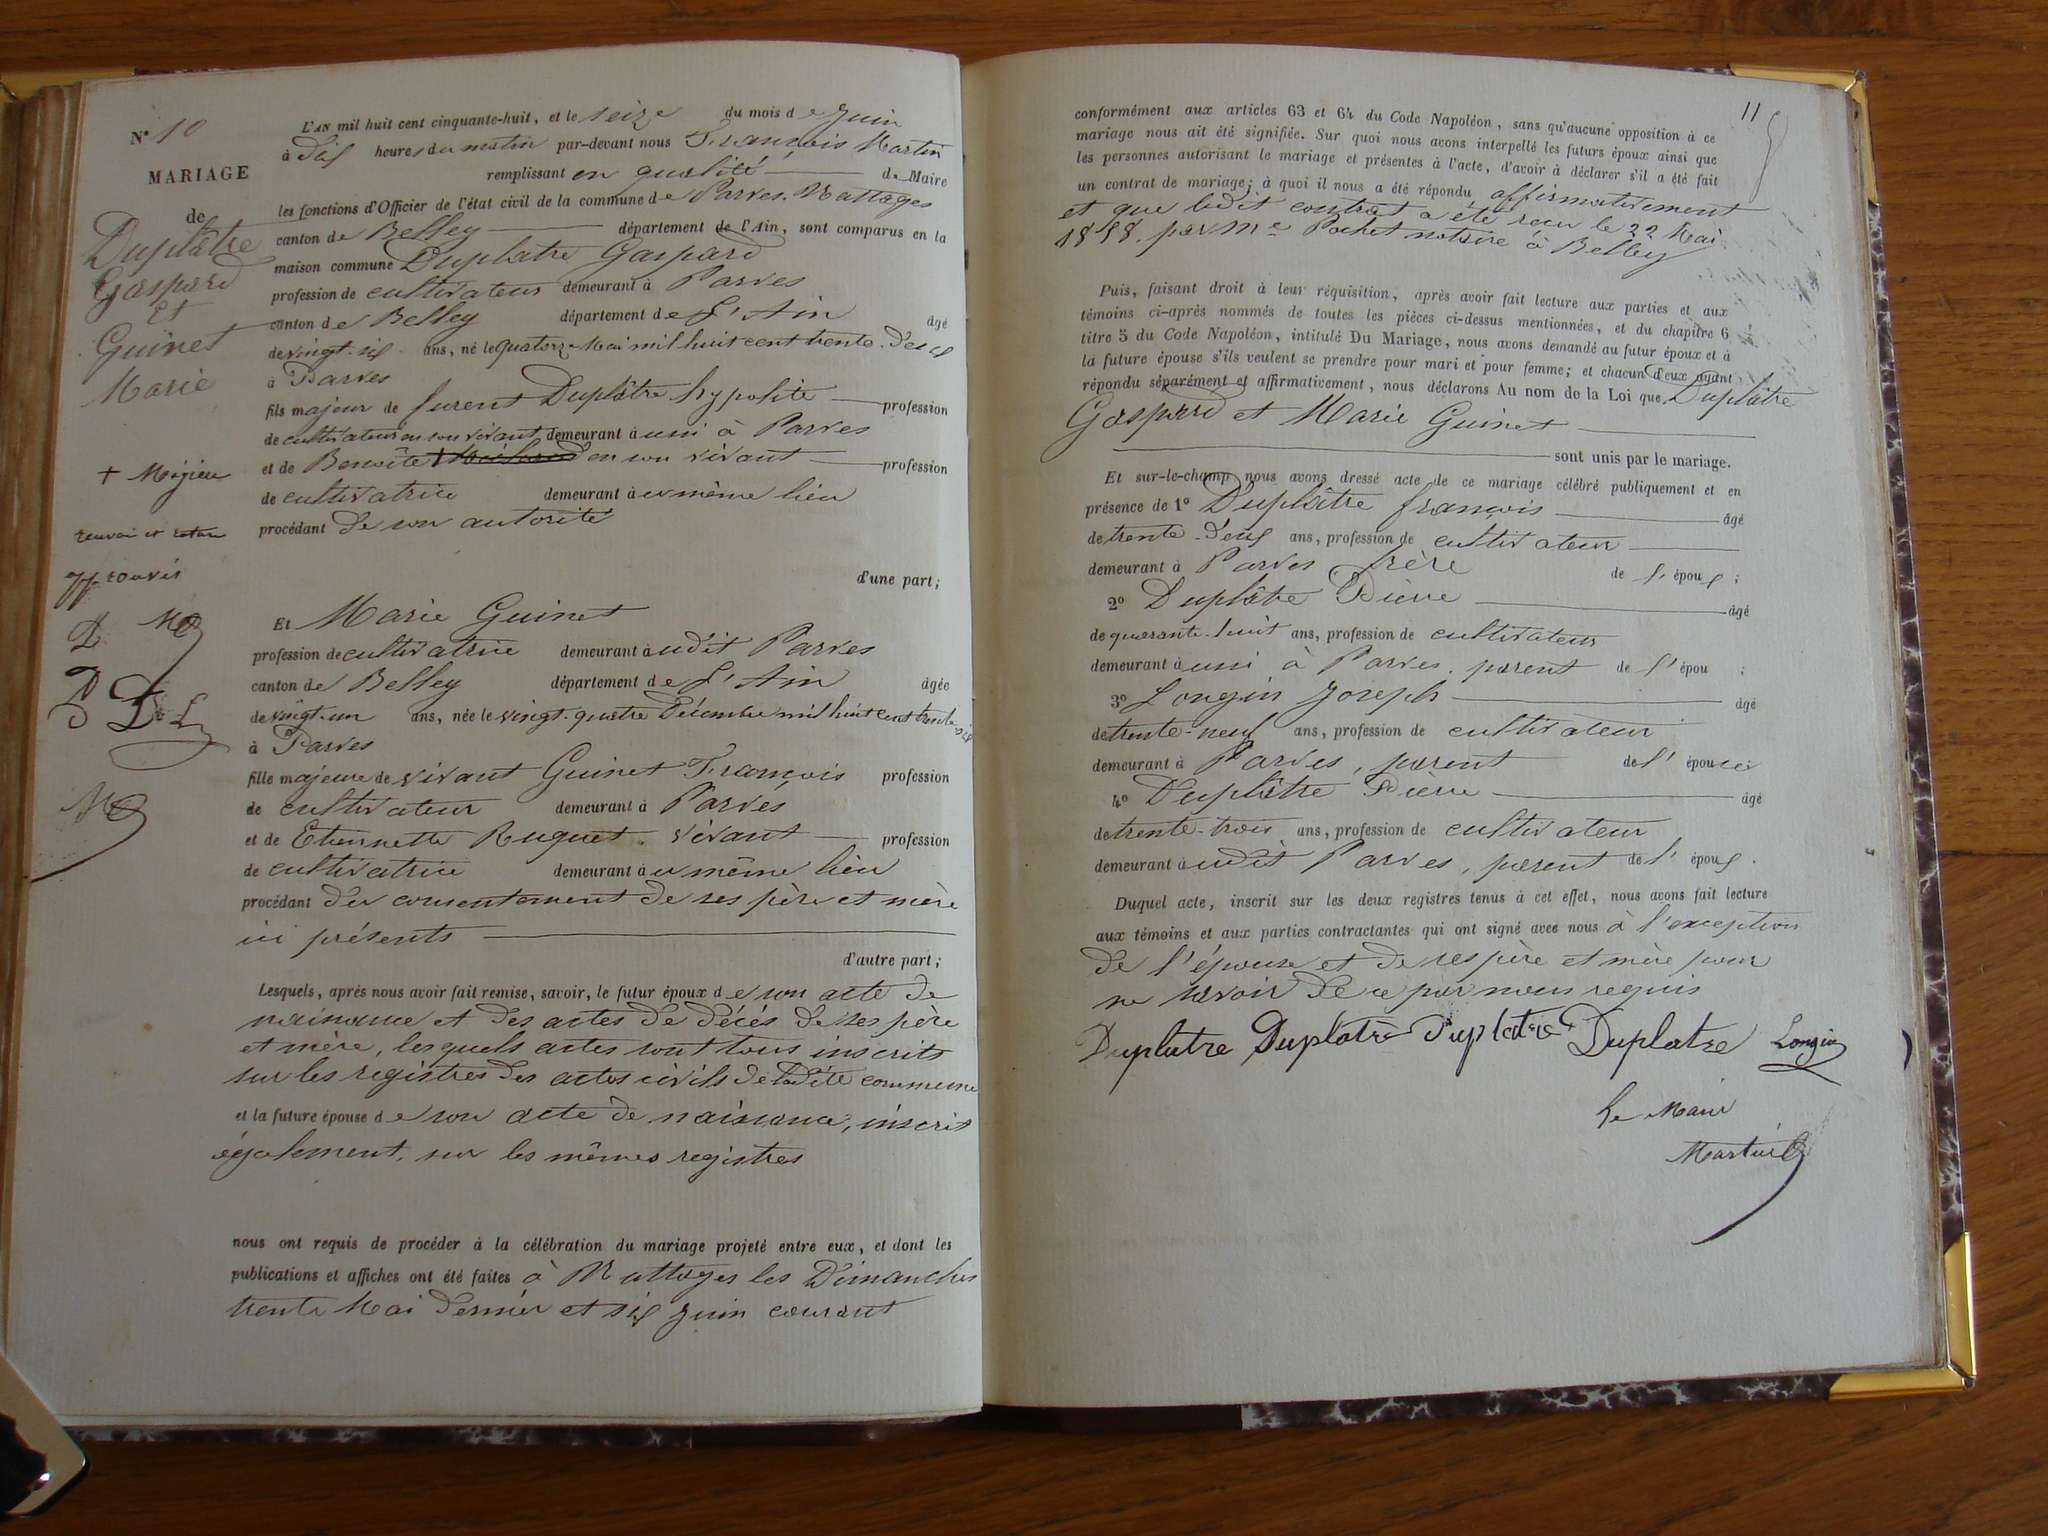 N° 10
MARIAGE
de
Duplâtre
Gaspard
Et
Guinet
Marie
L'AN mil huit cent cinquante-huit, et le seize du mois de Juin
à dix heures du matin par-devant nous François Martin
remplissant en qualité de Maire
les fonctions d'Officier de l'état civil de la commune de Parves-Nattages
canton de Belley département de l'Ain, sont comparus en la
maison commune Duplatre Gaspard
profession de cultivateur demeurant à Parves
canton de Belley département de L'Ain âgé
de vingt-six ans, né le quatorze Mai mil huit cent trente-deux
à Parves
fils majeur de furent Duplâtre hypolite profession
de cultivateur en son vivant demeurant à ussi à Parves
et de Benoîte en son vivant profession
+ Mojieu
de cultivatrice demeurant à u même lieu
procédant de son autorité
renvoi et rature
approuvés
d'une part;
Et Marie Guinet
profession de cultivatrice demeurant à udit Parves
canton de Belley département de L'Ain âgée
de vingt-un ans, née le vingt-quatre Décembre mil huit cent trente-six
à Parves
fille majeure de vivant Guinet François profession
de cultivateur demeurant à Parves
et de Etiennette Ruguet vivant profession
de cultivatrice demeurant à u même lieu
procédant du consentement de ses père et mère
ici présents
d'autre part;
Lesquels, après nous avoir fait remise, savoir, le futur époux de son acte de
naissance et des actes de décés de ses père
et mère, lesquels actes sont tous inscrits
sur les registres des actes civils de ladite commune
et la future épouse de son acte de naissance, inscrit
également, sur les mêmes registres
nous ont requis de procéder à la célébration du mariage projeté entre eux, et dont les
publications et affiches ont été faites à Nattages les Dimanches
trente Mai dernier et six Juin courant
11
conformément aux articles 63 et 64 du Code Napoléon, sans qu'aucune opposition à ce
mariage nous ait été signifiée. Sur quoi nous avons interpellé les futurs époux ainsi que
les personnes autorisant le mariage et présentes à l'acte, d'avoir à déclarer s'il a été fait
un contrat de mariage; à quoi il nous a été répondu affirmativement
et que ledit contrat a été recu le 22 Mai
1858. par Me Pochet notaire à Belley
Puis, faisant droit à leur réquisition, après avoir fait lecture aux parties et aux
témoins ci-après nommés de toutes les pièces ci-dessus mentionnées, et du chapitre 6
titre 5 du Code Napoléon, intitulé Du Mariage, nous avons demandé au futur époux et à
la future épouse s'ils veulent se prendre pour mari et pour femme; et chacun d'eux ayant
répondu séparément et affirmativement, nous déclarons Au nom de la Loi que Duplâtre
Gaspard et Marie Guinet
sont unis par le mariage.
Et sur-le-champ nous avons dressé acte de ce mariage célébré publiquement et en
présence de 1° Duplâtre françois âgé
de trente-deux ans, profession de cultivateur
demeurant à Parves frère de l'époux;
2° Duplâtre Pierre âgé
de quarante-huit ans, profession de cultivateur
demeurant à ussi à Parves, parent de l'épou ;
3° Longin Joseph âgé
de trente-neuf ans, profession de cultivateur
demeurant à Parves, parent de l'épouse
4° Duplâtre Pierre âgé
de trente-trois ans, profession de cultivateur
demeurant à udit Parves, parent de l'époux.
Duquel acte, inscrit sur les deux registres tenus à cet effet, nous avons fait lecture
aux témoins et aux parties contractantes qui ont signé avec nous à l'exception
de l'épouse et de ses père et mère pour
ne savoir de ce par nous requis
Duplatre Duplatre Duplatre Duplatre Longin
Le Maire
Martin